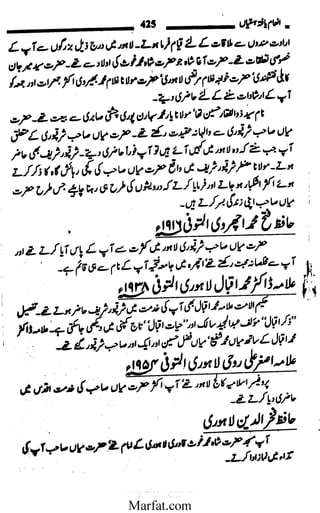 انعام یافتہ ہستیاں 425
ارادت مندوں سے ملاقات کے لئے قیام فرما ہوتے۔ لاہور میں درج ذیل بزرگوں سے آپ کے
خصوصی تعلقات تھے۔ آغا شاہ جو حضرت شاہ محمد غوث کی اولاد سے تھے۔ حضرت سید میر جان
کابلی نقشبندی حضرت خواجہ غلام مرتضیٰ لاہوری حضرت مولانا غلام محمد بھیروی اکثر جمعرات اور جمعہ کو
آپ کے ارشادات سننے کے لئے حاضری دیتے۔
نام سید ذوالفقار حسین تھا مولانا یار سہارن پوری چشتی صابری سے بیعت تھے۔ حضرت
میاں صاحب شرقپوری سے والہانہ عقیدت رکھتے تھے۔ حضرت میاں صاحب شرقپوری کے متعلق
آپ جب سنتے کہ وہ لاہور میں کہیں آئے ہیں تو آپ فوراً حاضری دیتے۔ شرقپور شریف بھی حاضر
ہوتے۔ مولانا شرقپور شریف میں واقع حضرت میاں صاحب کی کچی رہائش گاہ کا ذکر کرتے
ہوئے اکثر اشکبار ہو جاتے اور فرمایا کرتے کہ درویشوں کی طرح ہی رہنا چاہئے جس طرح حضرت
میاں صاحب اپنی زندگی بسر کرتے ہیں۔
حافظ فتح محمد اچھروی المتوفی ۱۹۱۶ء
حضرت میاں صاحب شرقپوری لاہور میں کثرت سے آپ کے پاس آیا کرتے تھے اور
آپ سے مخلصانہ محبت رکھتے تھے اچھرہ میں جامعہ فتحیہ آپ کے نام سے ہی قائم ہے۔
علامہ ڈاکٹر محمد اقبال لاہوری المتوفی ۱۹۳۸ء
حکیم الامت علامہ محمد اقبال بھی آپ کی خدمت میں شرقپور شریف حاضر ہوئے تھے۔ تفصیل
"ذکر اقبال" مؤلف عبدالمجید سالک اور "حیات اقبال" تاج کمپنی میں دیکھی جا سکتی ہے۔ علامہ ڈاکٹر
محمد اقبال کے ساتھ میاں محمد شفیع میاں فضل حسین اور ایک اور صاحب شرقپور گئے تھے۔
علامہ اصغر علی روحی لاہوری المتوفی ۱۹۵۴ء
پروفیسر اسلامیہ کالج لاہور تھے آپ اکثر حضرت میاں صاحب کی خدمت اقدس میں
حاضری دیا کرتے تھے۔
حافظ فخر الدین لاہوری
آپ مسجد حضرت شاہ محمد غوث قادری لاہوری کے امام تھے حضرت میاں صاحب آپ کی
اقتداء میں نماز ادا کرتے۔
Marfat.com